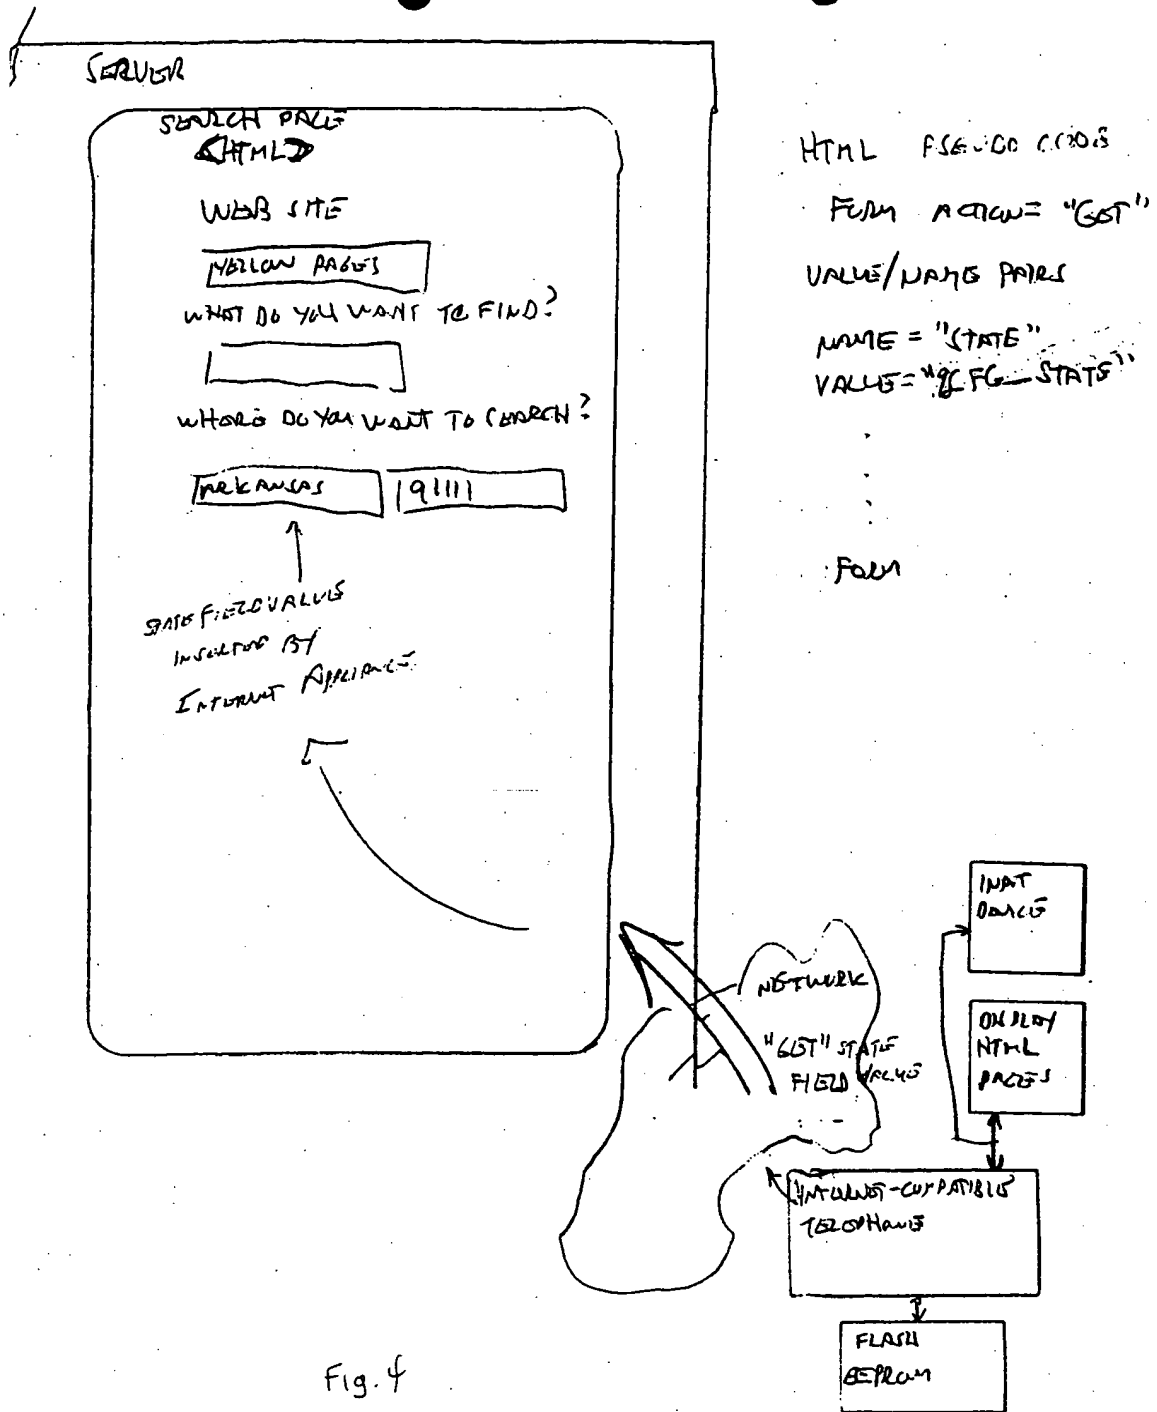 SERVER
SEARCH PAGE
<HTML>
WEB SITE
YELLOW PAGES
WHAT DO YOU WANT TO FIND?
WHERE DO YOU WANT TO SEARCH?
ARKANSAS 91111
STATE FIELD VALUE
INSERTED BY
INTERNET APPLIANCE
HTML PSEUDO CODE
FORM ACTION= "GET"
VALUE/NAME PAIRS
NAME = "STATE"
STATE"
FORM
NETWORK
"GET" STATE
FIELD VALUE
INPUT
DEVICE
DISPLAY
HTML
PAGES
INTERNET-COMPATIBLE
TELEPHONE
FLASH
EEPROM
Fig. 4